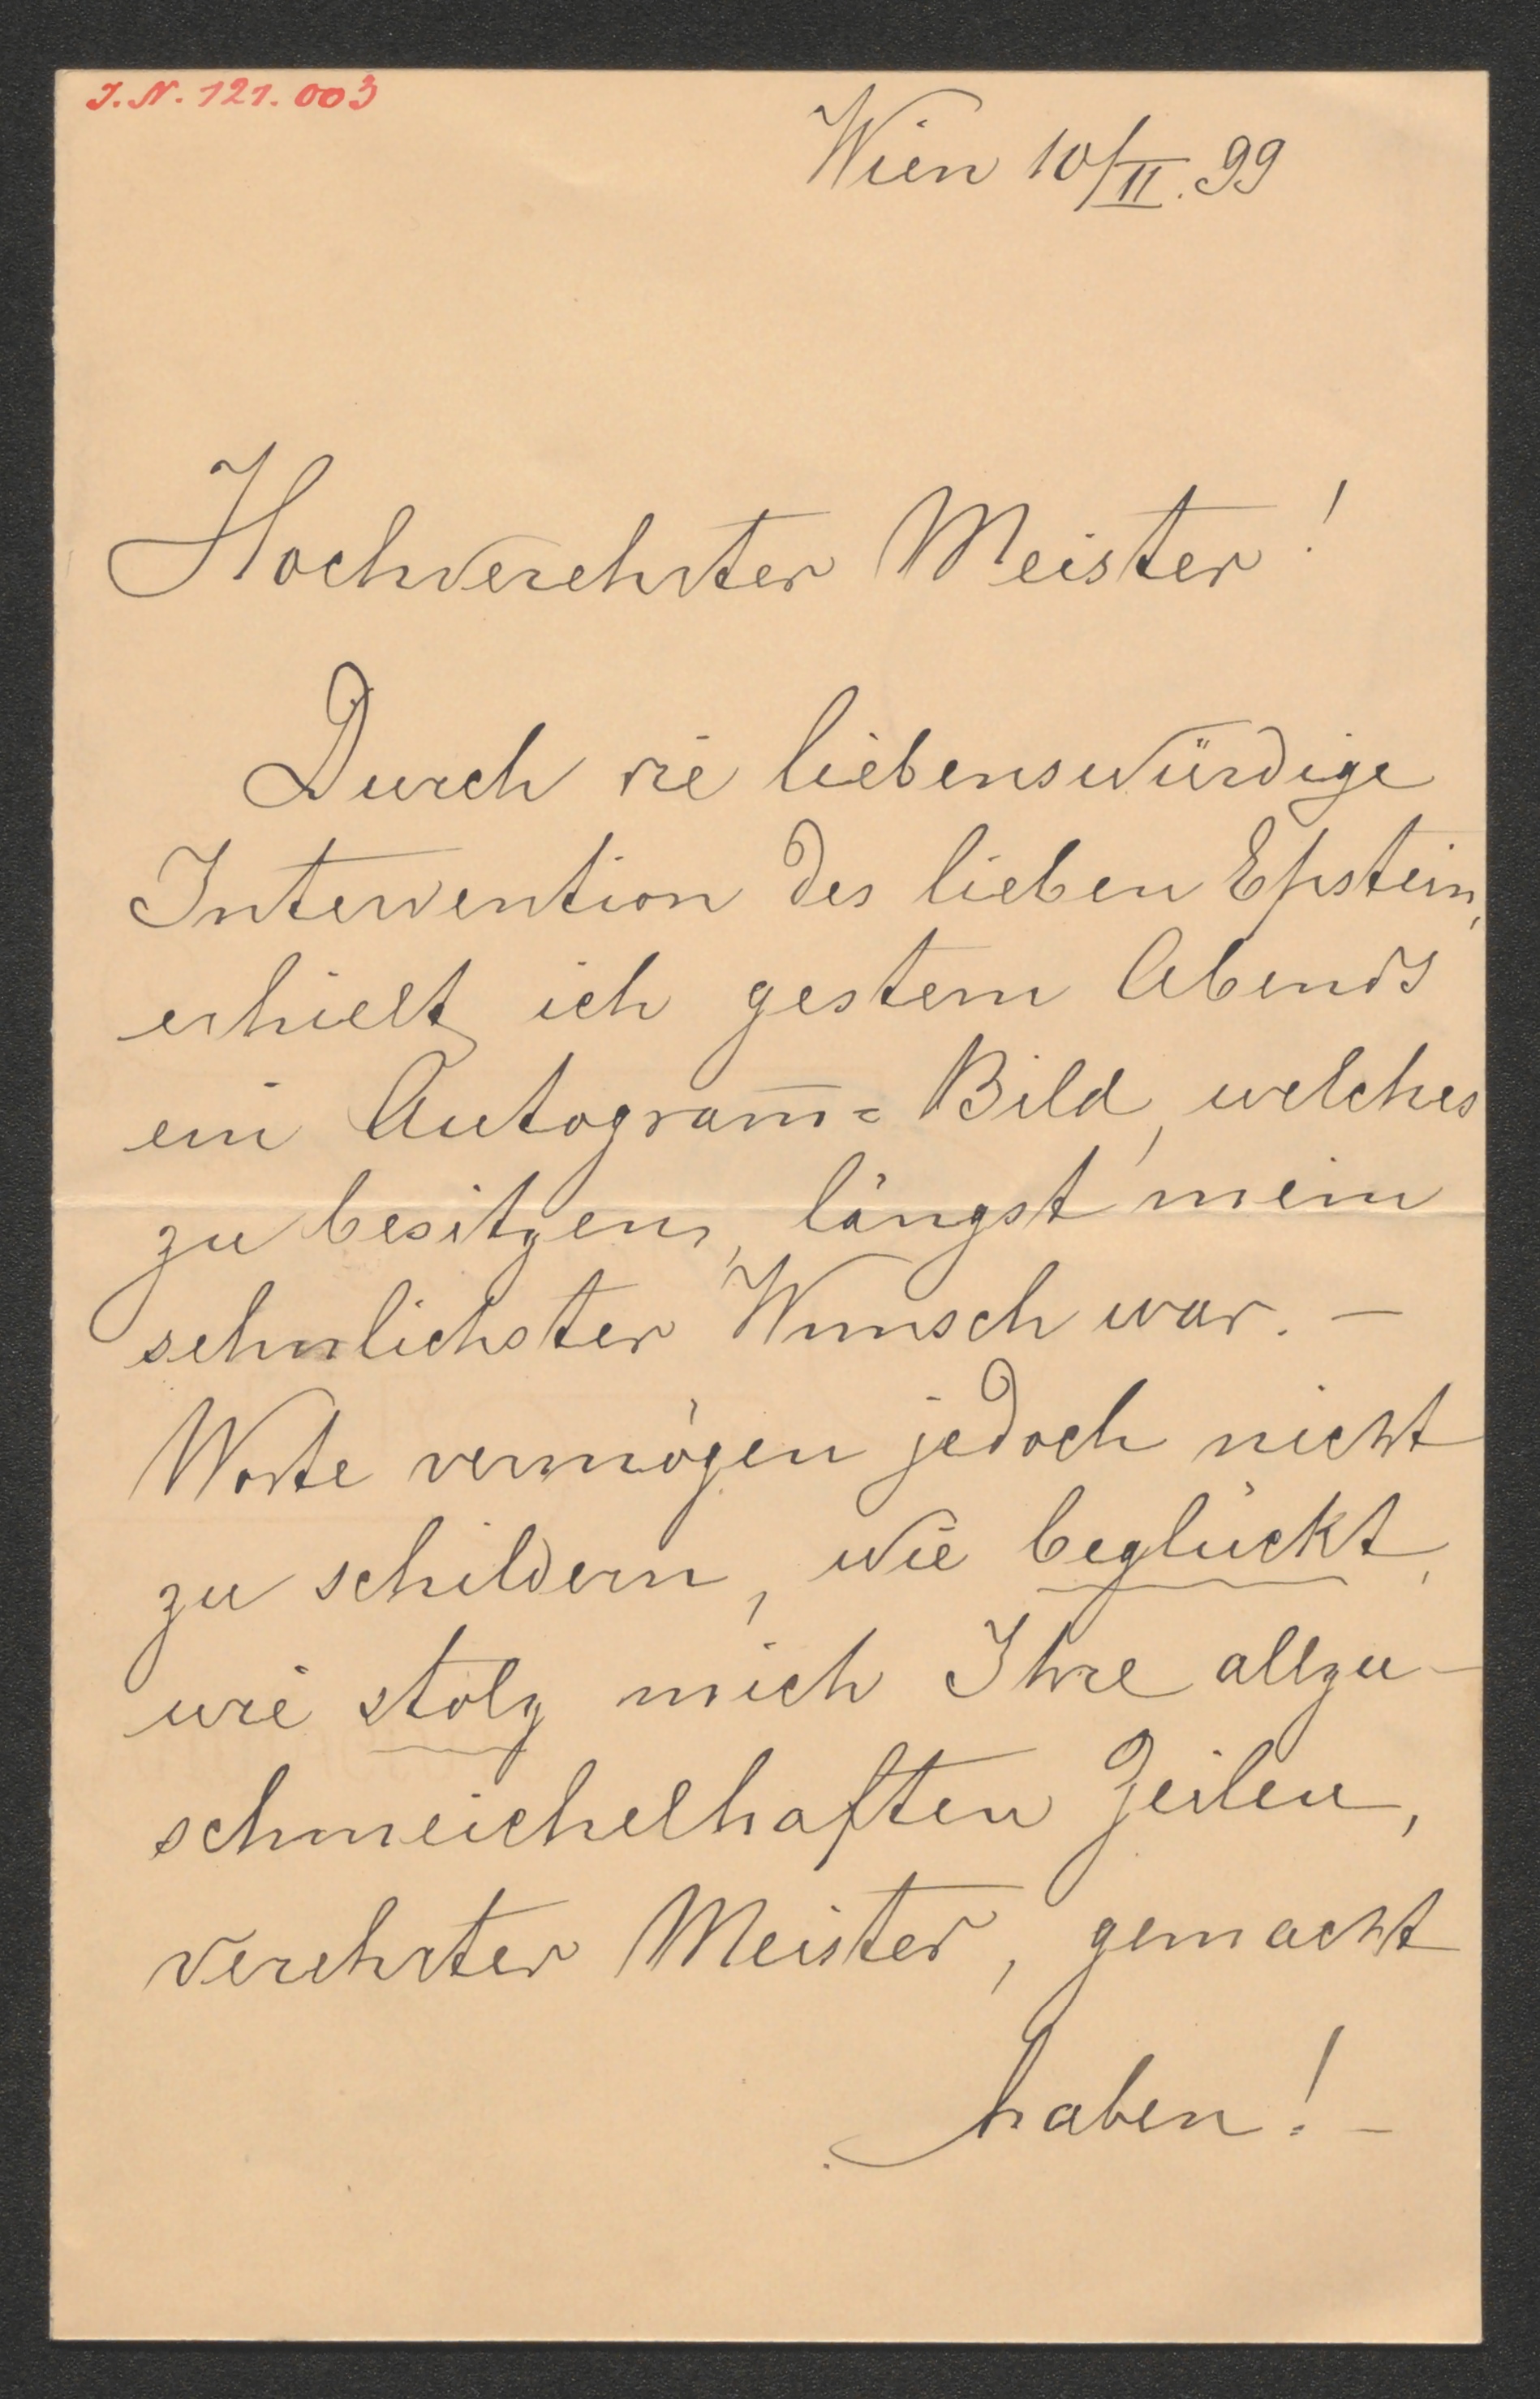 J. N. 121.003
Wien 10/II. 99
Hochverehrter Meister!
Durch die liebenswürdige
Intervention des lieben Epstein,
erhielt ich gestern Abends
ein Autogram̅= Bild, welches
zu besitzen, längst mein
sehnlichster Wunsch war. –
Worte vermögen jedoch nicht
zu schildern, wie beglückt,
wie stolz mich Ihre allzu-
schmeichelhaften Zeilen,
verehrter Meister, gemacht
haben! –